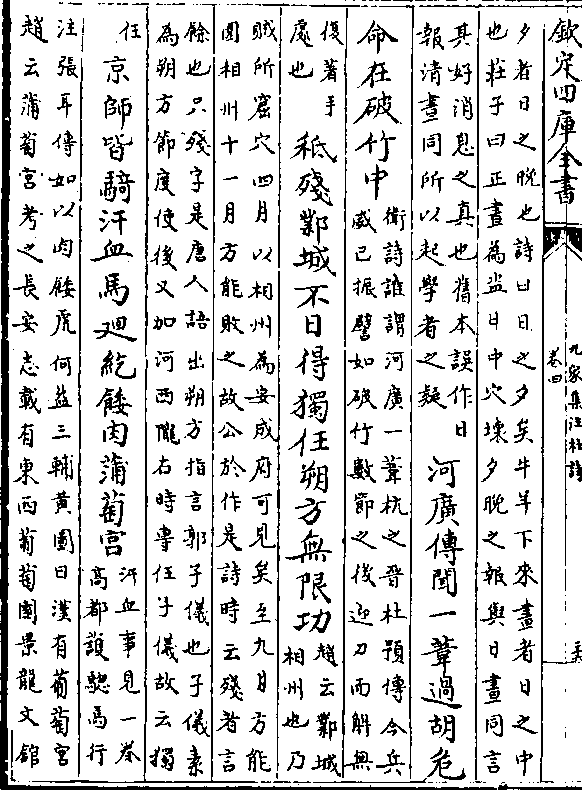 欽定四庫全書
九家集注杜詩
卷四
夕者日之晚也詩曰日之夕矣牛羊下來晝者日之中
也莊子曰正晝為盜日中穴壊夕晚之報與日晝同言
其好消息之真也舊本誤作日
報清晝同所以起學者之疑
河廣傳聞一葦過胡危
命在破竹中
衛詩誰謂河廣一葦杭之晉杜預傳今兵
威已振譬如破竹數節之後迎刀而解無
復著手
處也
秪殘鄴城不日得獨任朔方無限功
趙云鄴城
相州也乃
賊所窟穴四月以相州為安成府可見矣至九月方能
圍相州十一月方能敗之故公於作是詩時云殘者言
餘也只殘字是唐人語出朔方指言郭子儀也子儀素
為朔方節度使後又加河西隴右時専任子儀故云獨
任
京師皆騎汗血馬廻紇餧肉蒲萄宮
汗血事見一巻
高都護驄馬行
注張耳傳如以肉餧虎何益三輔黄圖曰漢有葡萄宮
趙云蒲萄宮考之長安志載有東西葡萄園景龍文館